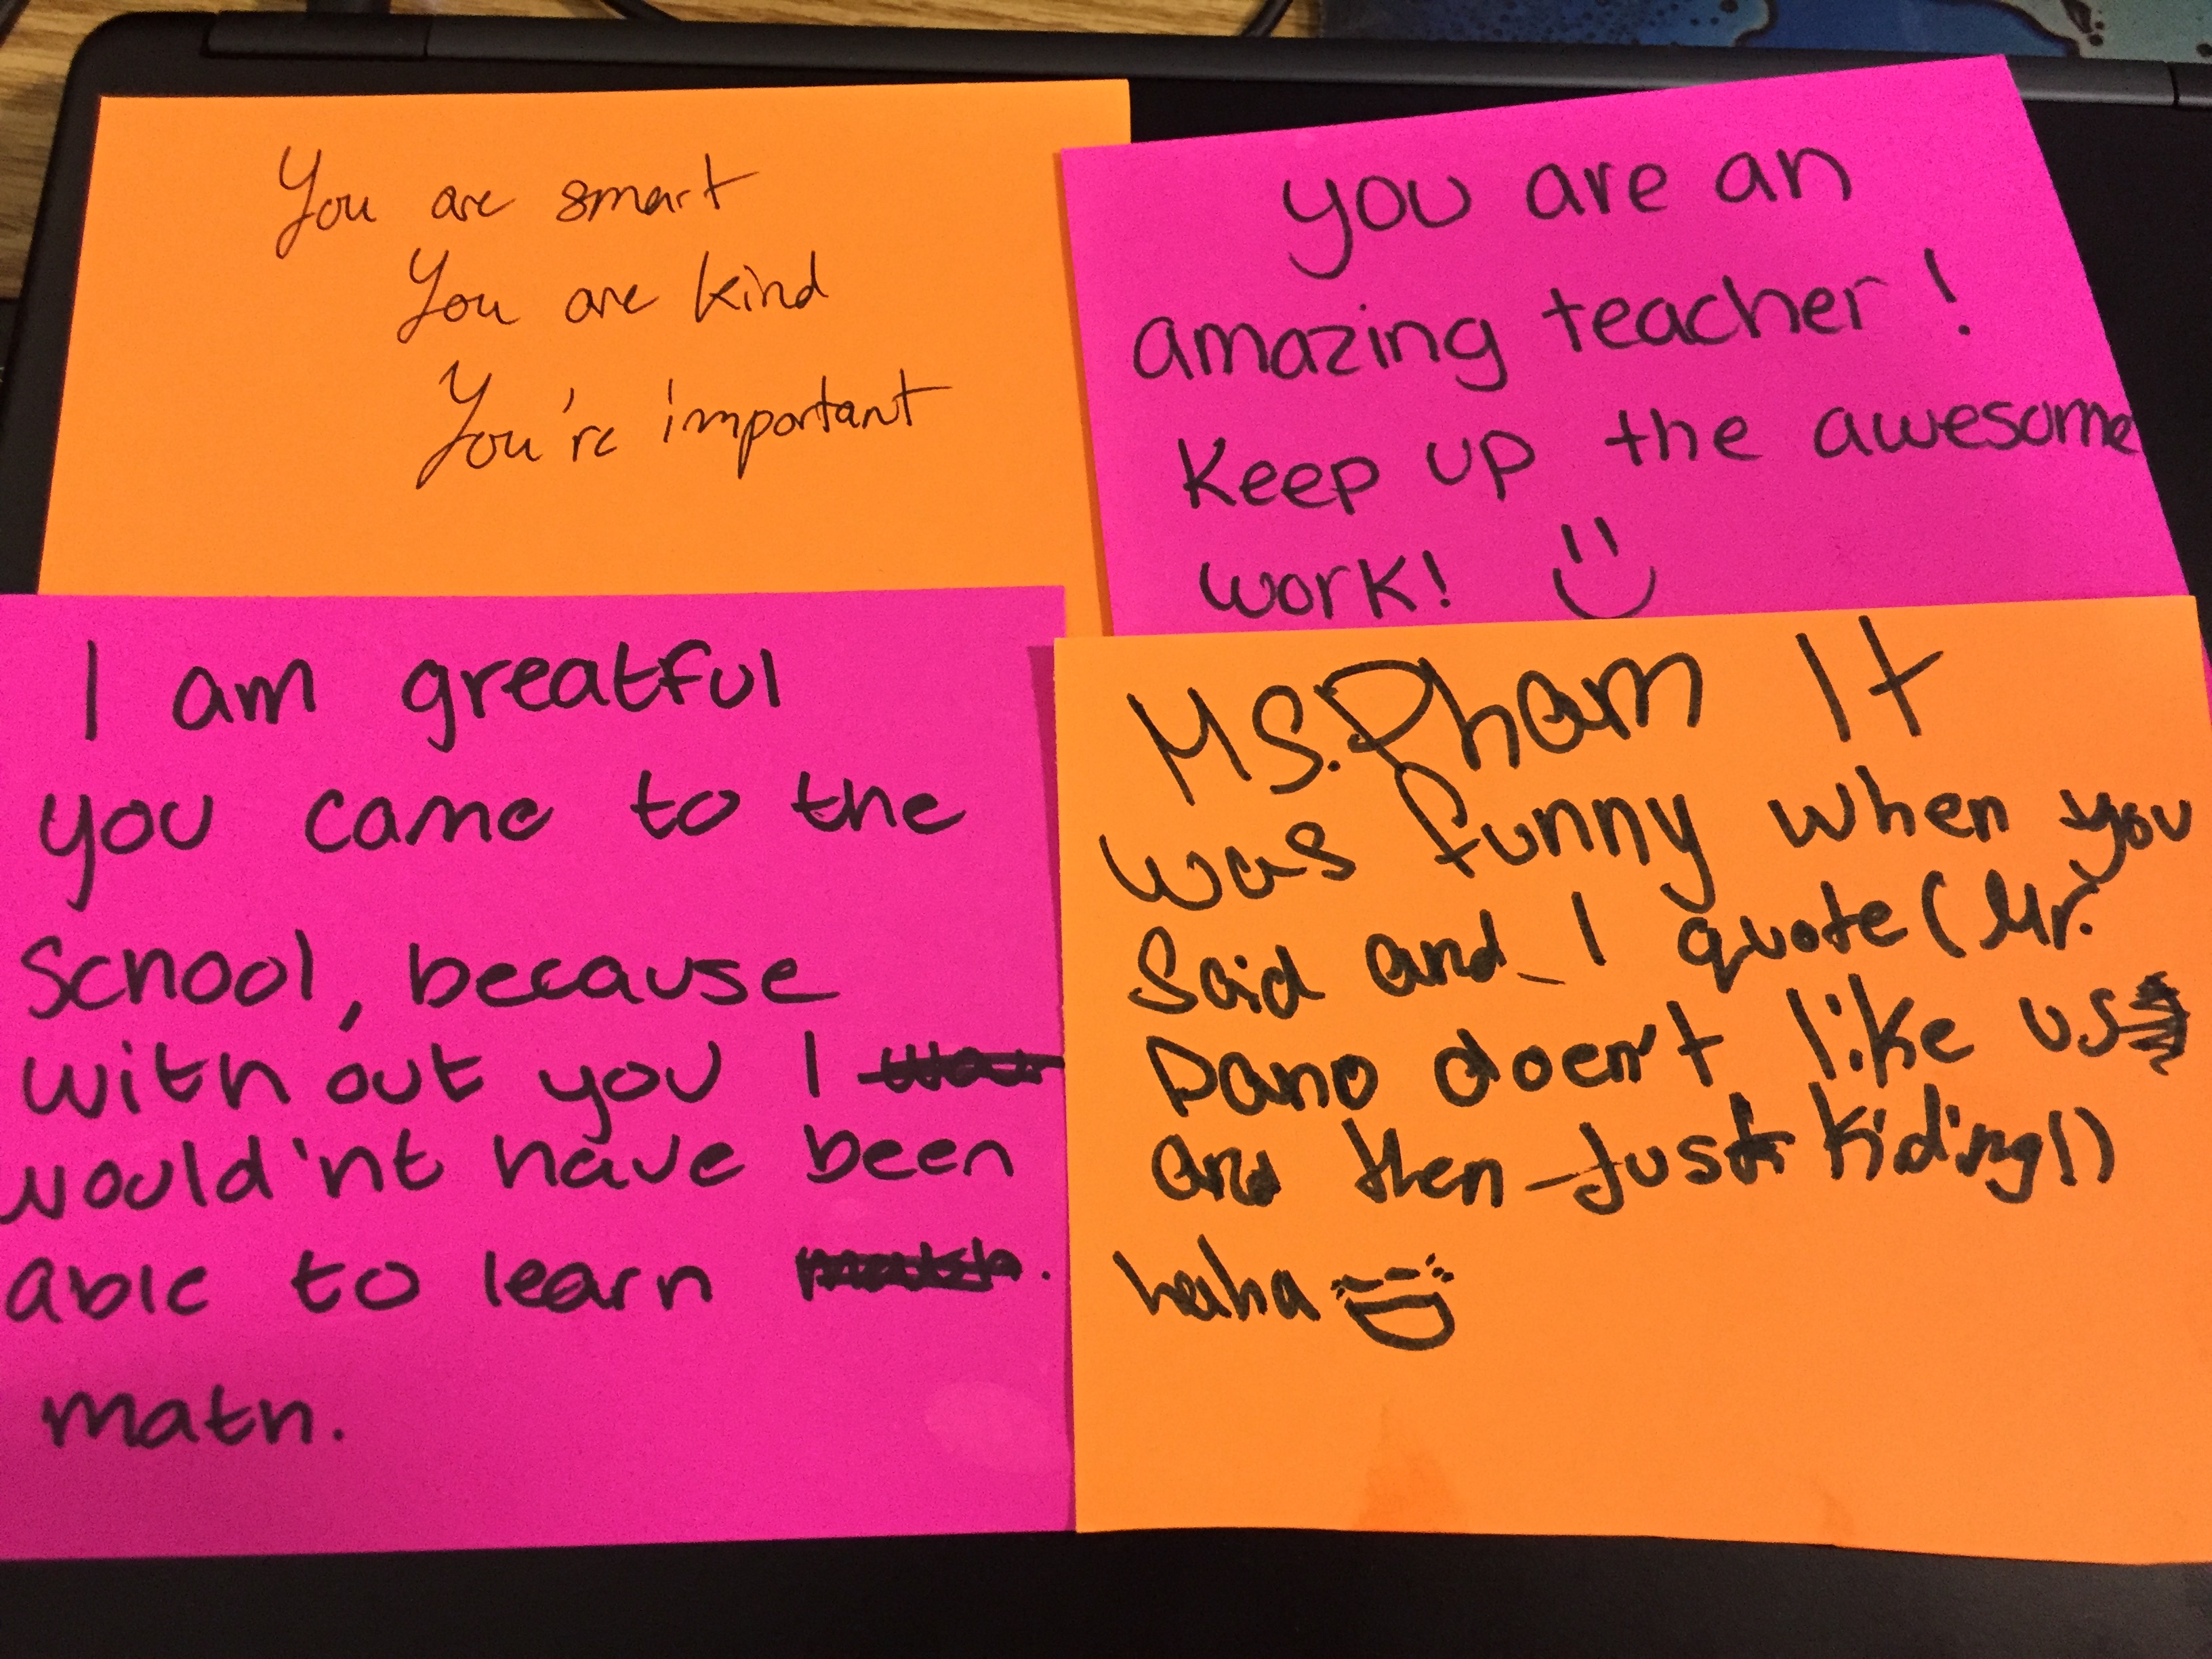 You are smart
You are kind
You're important
you are an
amazing teacher!
Keep up the awesome
work!
I am greatful
you came to the
school, because
with out you I
would'nt have been
able to learn .
math.
Ms. Pham It
was funny when you
Said and I quote (Mr.
Dano doen't like us
and then-Just kiding!)
haha